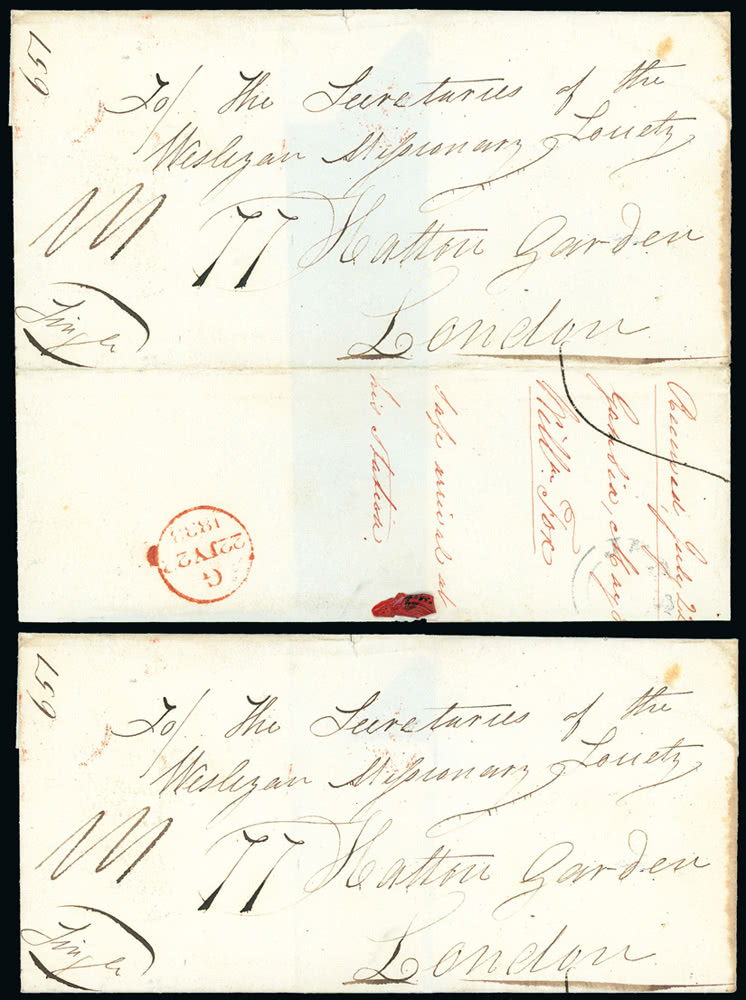 657
To/ The Secretaries of the
Wesleyan Missionary Society
77 Hatton Garden
London
Single
Received July 22
Gambia, May 8
Willm. Fox
Safe arrival at
his Station.
G
22JY22
183
657
To/ The Secretaries of the
Wesleyan Missionary Society
77 Hatton Garden
London
Single